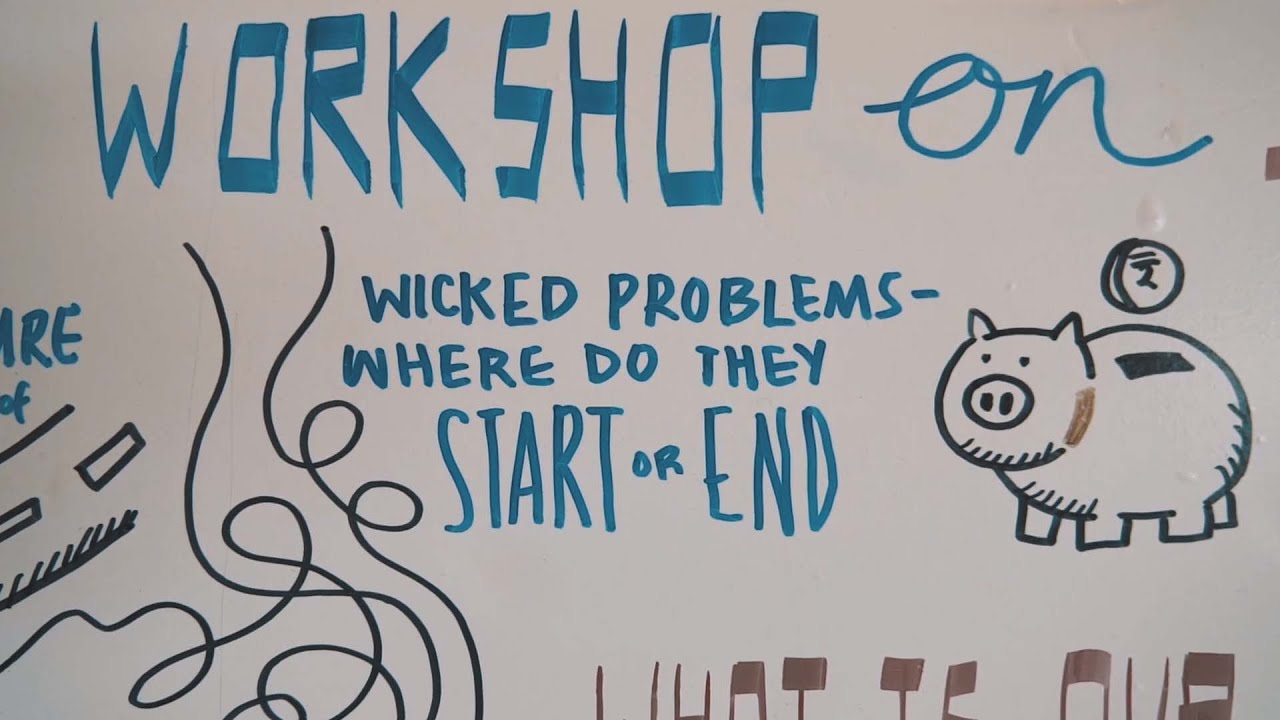 WORKSHOP on
WICKED PROBLEMS-
WHERE DO THEY
START OR END
of
₹
WHAT IS OUR